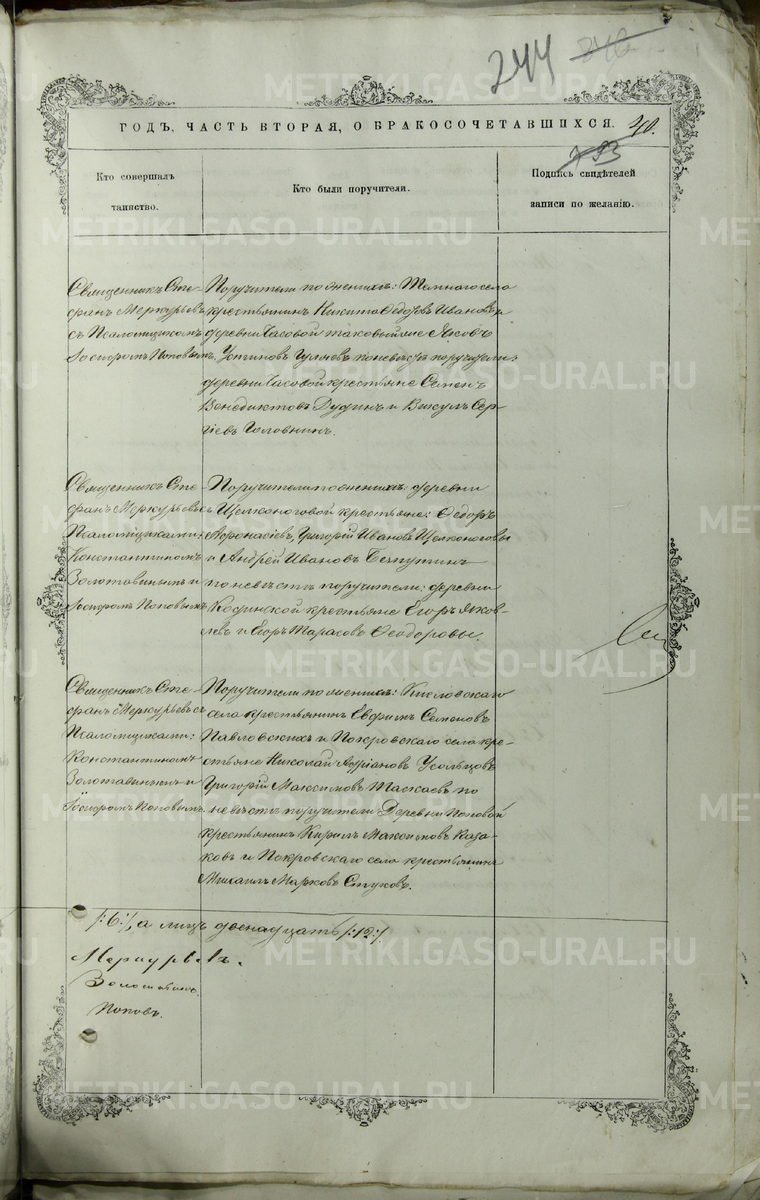 244
ГОДЪ, ЧАСТЬ ВТОРАЯ, О БРАКОСОЧЕТАВШИХСЯ.
Кто совершалъ
таинство.
Кто были поручители.
Подпись свидѣтелей
записи по желанію.
Священникъ Сте-
фанъ Меркурьевъ
съ Псаломщикомъ
Поповымъ
Поручители по женихѣ: села
крестьянинъ Никита Ѳедоровъ Ивановъ и
деревни Часовой таковый же Яковъ
Устиновъ по невѣстѣ поручители:
деревни Часовой крестьяне Семенъ
Венедиктовъ Дудинъ и Викулъ Сер-
гіевъ Головнинъ.
Священникъ Сте-
фанъ Меркурьевъ съ
Псаломщиками:
Константиномъ
Золотавинымъ и
Поповымъ
Поручители по женихѣ: деревни
Щелконоговой крестьяне: Ѳедоръ
Григорій Ивановъ Щелконоговы
и Андрей Ивановъ
по невѣстѣ поручители: деревни
Кодинской крестьяне Егоръ Яков-
левъ и Егоръ Тарасовъ Ѳеодоровы.
Священникъ Сте-
фанъ Меркурьевъ съ
Псаломщиками:
Константиномъ
Золотавинымъ и
Поповымъ
Поручители по женихѣ: Кисловскаго
села крестьянинъ Евфимъ Семеновъ
Павловскихъ и Покровскаго села кре-
стьяне Николай Андріановъ Усольцовъ
Григорій Максимовъ Таскаевъ по
невѣстѣ поручители Деревни Поповой
крестьянинъ Кирилъ Максимовъ Каза-
ковъ и Покровскаго села крестьянинъ
Михаилъ Марковъ Стуковъ.
/:6:/, а лицъ двенадцать /:12:/
Меркурьевъ.
Золотавинъ.
Поповъ.
METRIKI.GASO-URAL.RU